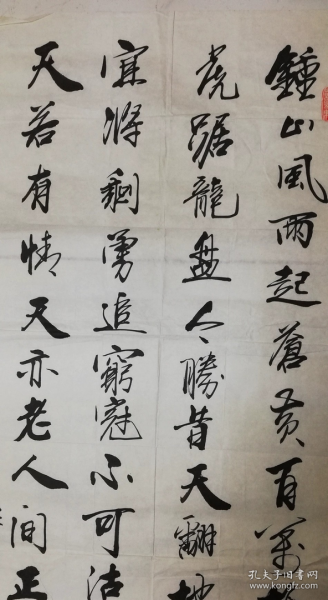 鍾山風雨起蒼黃百萬
虎踞龍盤今勝昔天翻地
宜將剩勇追窮寇不可沽
天若有情天亦老人間正
孔夫子旧书网